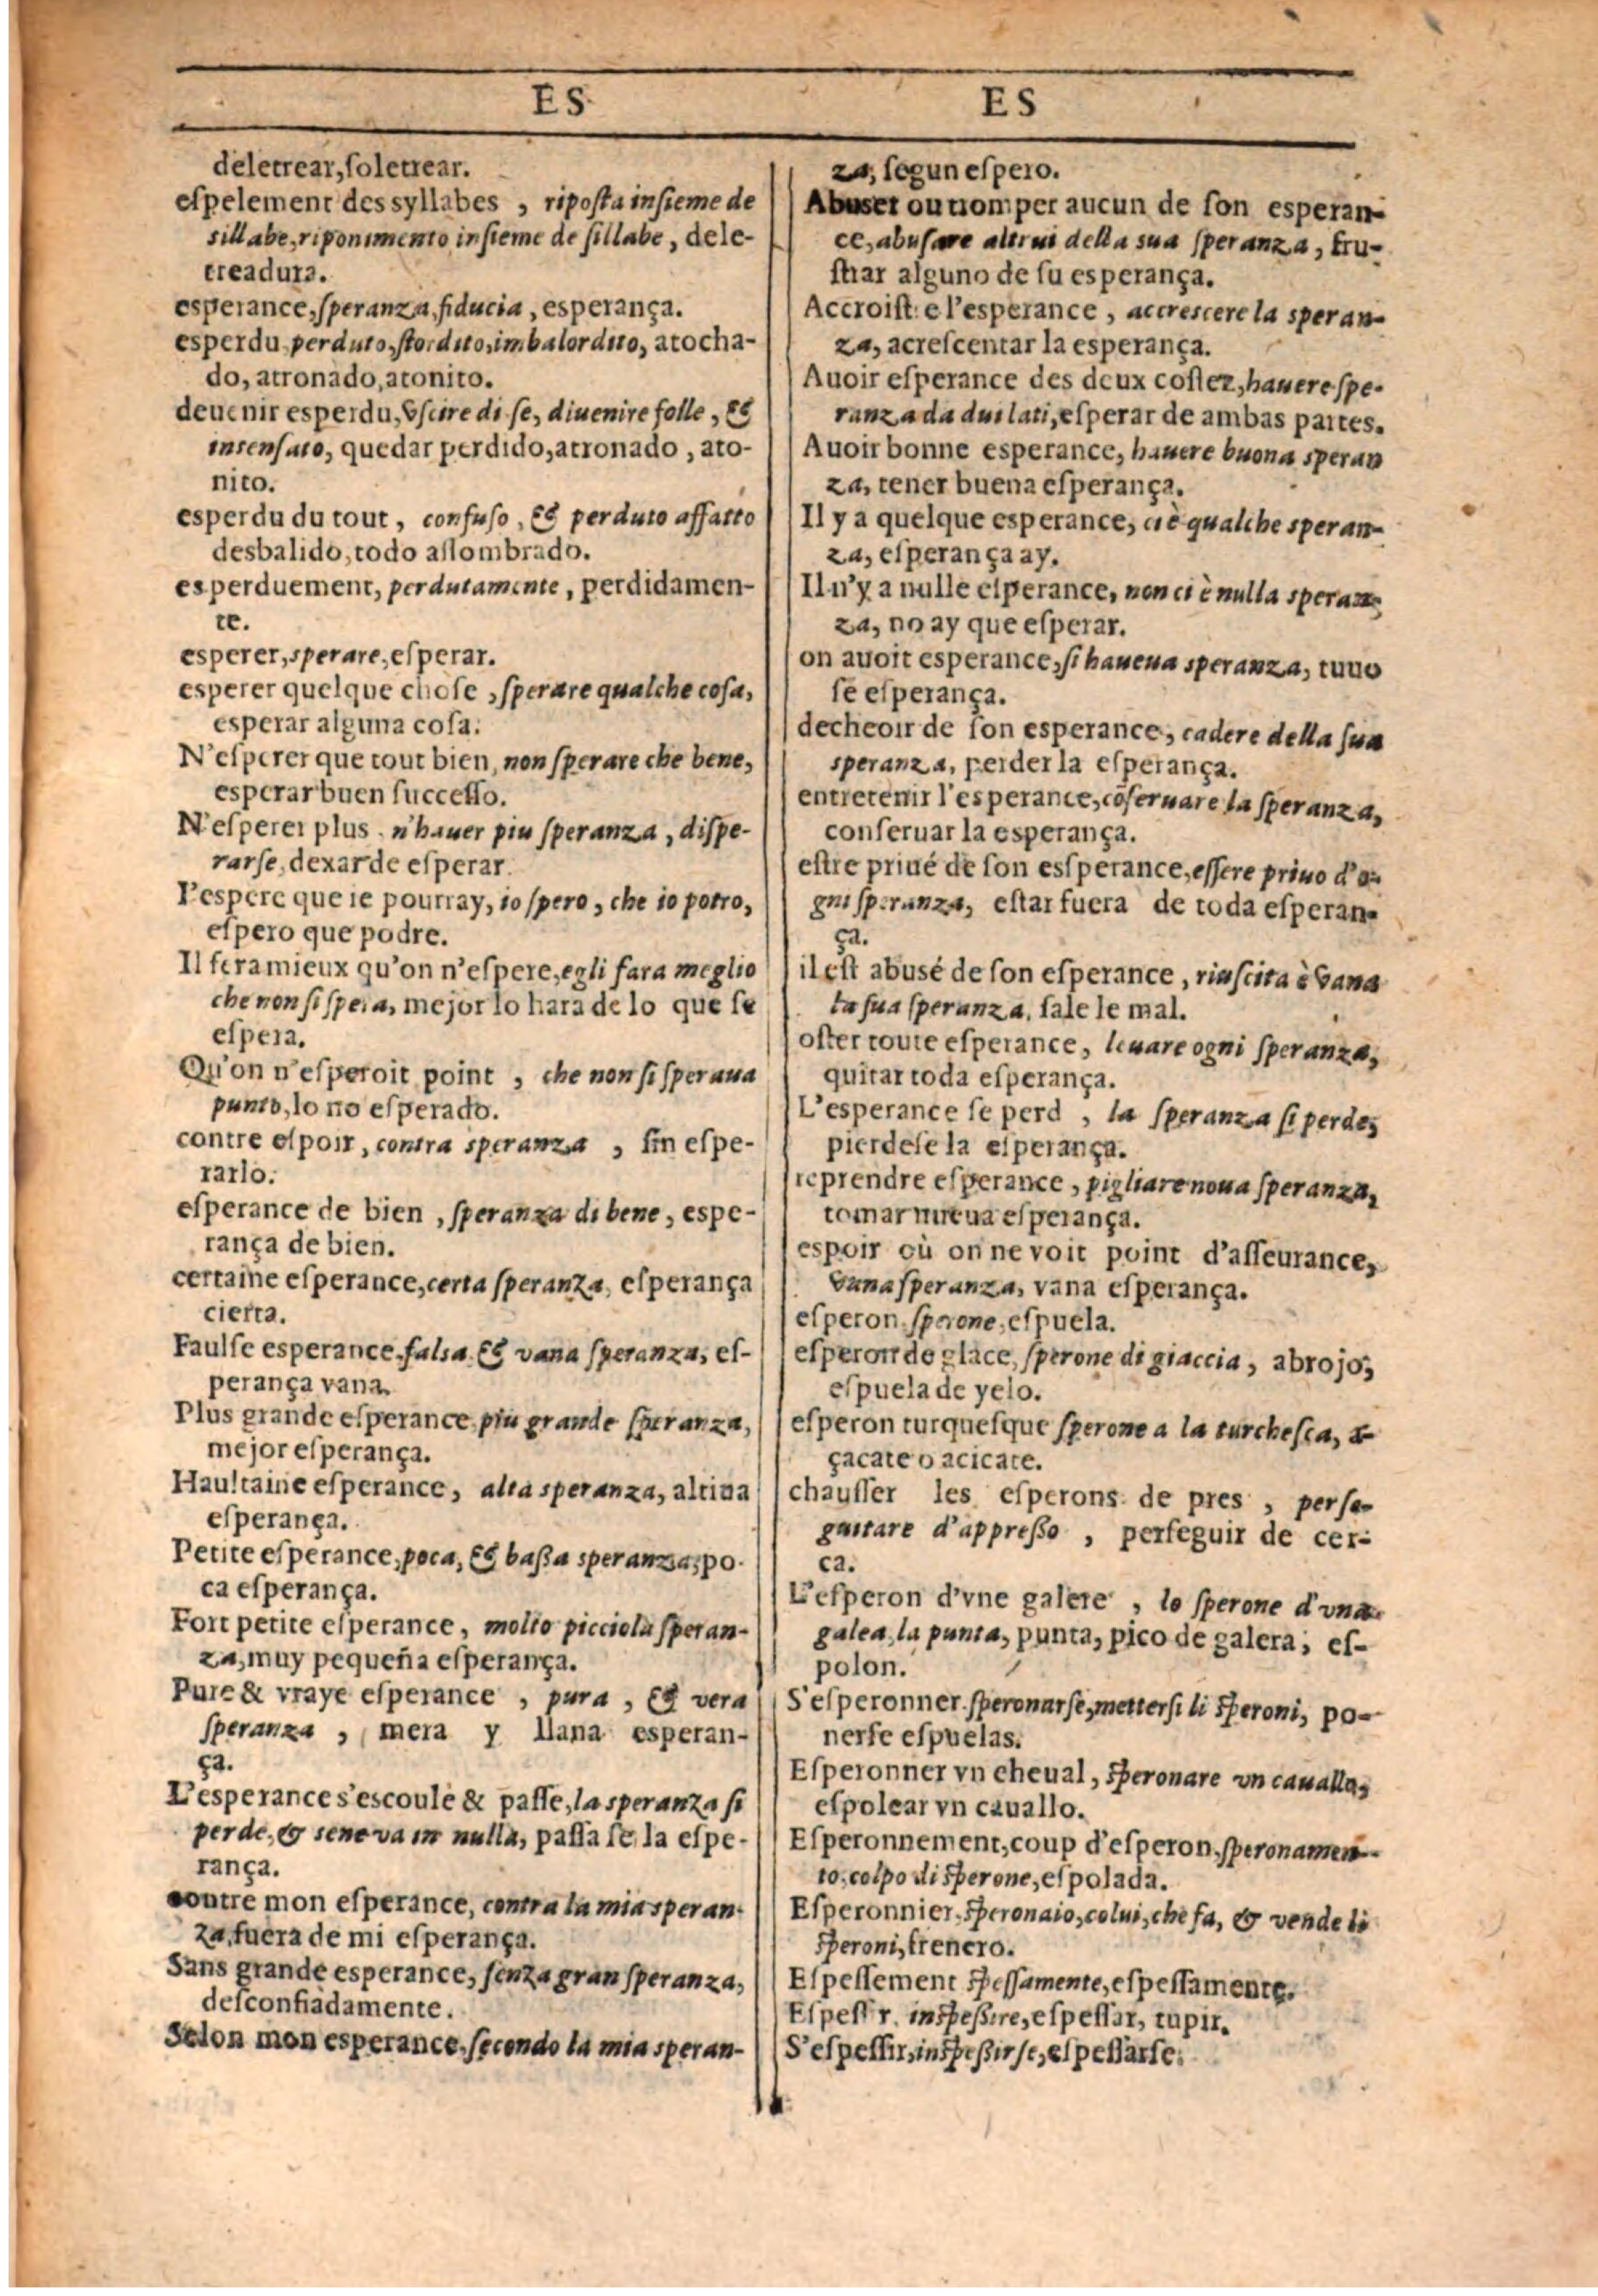 ES
ES
deletrear, ſoletrear.
eſpelement des syllabes , ripoſta inſieme de
ſillabe, riponimento inſieme de ſillabe, dele-
treadura.
esperance, ſperanza, fiducia, esperança.
esperdu, perduto, ſtordito, imbalordito, atocha-
do, atronado, atonito.
deuenir esperdu, vſcire di ſe, diuenire folle, &
inſenſato, quedar perdido, atronado, ato-
nito.
esperdu du tout, confuſo, & perduto affatto
desbalido, todo aſſombrado.
esperduement, perdutamente, perdidamen-
te.
esperer, sperare, eſperar.
esperer quelque choſe, ſperare qualche coſa,
esperar alguna coſa.
N'eſperer que tout bien, non ſperare che bene,
esperar buen ſucceſſo.
N'eſperer plus, n'hauer piu ſperanza, diſpe-
rarſe, dexar de eſperar.
I'espere que ie pourray, io ſpero, che io potro,
eſpero que podre.
Il ſera mieux qu'on n'eſpere, egli fara meglio
che non ſi ſpera, mejor lo hara de lo que ſe
eſpera.
Qu'on n'eſperoit point , che non ſi ſperaua
punto, lo no eſperado.
contre eſpoir, contra speranza , ſin eſpe-
rarlo.
eſperance de bien , ſperanza di bene, espe-
rança de bien.
certaine eſperance, certa ſperanza, eſperança
cierta.
Faulſe esperance, falsa & vana ſperanza, eſ-
perança vana.
Plus grande eſperance piu grande ſperanza,
mejor eſperança.
Haultaine eſperance, alta speranza, altiua
eſperança.
Petite eſperance, poca, & baßa speranza, po-
ca eſperança.
Fort petite eſperance, molto picciola ſperan-
za, muy pequeña eſperança.
Pure & vraye eſperance , pura , & vera
ſperanza , mera y llana esperan-
ça.
L'esperance s'escoule & paſſe, la speranza ſi
perde, & sene va in nulla, paſſa ſe la eſpe-
rança.
contre mon eſperance, contra la mia speran-
za, fuera de mi eſperança.
Sans grande esperance, ſenza gran ſperanza,
deſconfiadamente.
Selon mon esperance, ſecondo la mia speran-
za, ſegun eſpero.
Abuser ou tromper aucun de ſon esperan-
ce, abuſare altrui della sua ſperanza, fru-
ſtrar alguno de ſu esperança.
Accroiſtre l'esperance , accrescere la speran-
za, acreſcentar la esperança.
Auoir eſperance des deux coſtez, hauere ſpe-
ranza da dui lati, eſperar de ambas partes.
Auoir bonne esperance, hauere buona speran
za, tener buena eſperança.
Il y a quelque esperance, ci è qualche speran-
za, eſperança ay.
Il n'y a nulle eſperance, non ci è nulla speran-
za, no ay que eſperar.
on auoit esperance, ſi haueua speranza, tuuo
ſe eſperança.
decheoir de ſon esperance, cadere della ſua
speranza, perder la eſperança.
entretenir l'esperance, cõſeruare la ſperanza,
conſeruar la esperança.
eſtre priué de ſon esſperance, eſſere priuo d'o-
gni ſperanza, eſtar fuera de toda eſperan-
ça.
il eſt abusé de ſon eſperance, riuſcita è vana
la ſua ſperanza, ſale le mal.
oſter toute eſperance, leuare ogni ſperanza,
quitar toda eſperança.
L'esperance ſe perd , la ſperanza ſi perde,
pierdeſe la eſperança.
reprendre eſperance, pigliare noua ſperanza,
tomar nueua eſperança.
espoir où on ne voit point d'aſſeurance,
vana ſperanza, vana eſperança.
eſperon, ſperone, eſpuela.
eſperon de glace, ſperone di giaccia, abrojo,
eſpuela de yelo.
eſperon turqueſque ſperone a la turcheſca, a-
çacate o acicate.
chauſſer les eſperons de pres , perſe-
guitare d'appreßo , perſeguir de cer-
ca.
L'eſperon d'vne galere , lo sperone d'vna
galea, la punta, punta, pico de galera, eſ-
polon.
S'eſperonner, ſperonarſe, metterſi li ſperoni, po-
nerſe eſpuelas.
Eſperonner vn cheual, ſperonare vn cauallo,
eſpolear vn cauallo.
Eſperonnement, coup d'eſperon, ſperonamen-
to, colpo di ſperone, eſpolada.
Eſperonnier, ſperonaio, colui, che fa, & vende li
ſperoni, frenero.
Eſpeſſement ſpeſſamente, eſpeſſamente.
Eſpeſſir, inſpeßire, eſpeſſar, tupir.
S'eſpeſſir, inſpeßirſe, eſpeſſarſe.